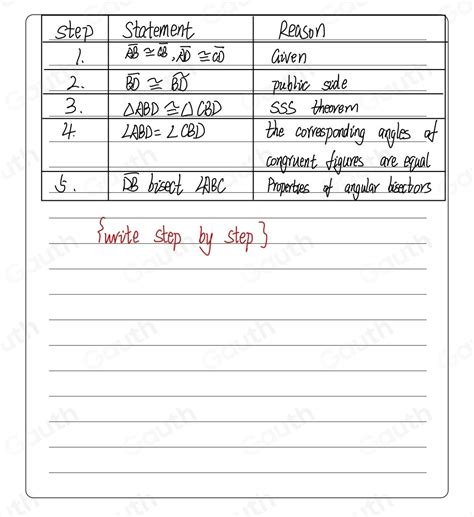 Step Statement Reason
1. AB ≅ CB, AD ≅ CD Given
2. BD ≅ BD public side
3. △ABD ≅ △CBD SSS theorem
4. ∠ABD = ∠CBD the corresponding angles of
congruent figures are equal
5. DB bisect ∠ABC Properties of angular bisectors
{write step by step}
Gauth